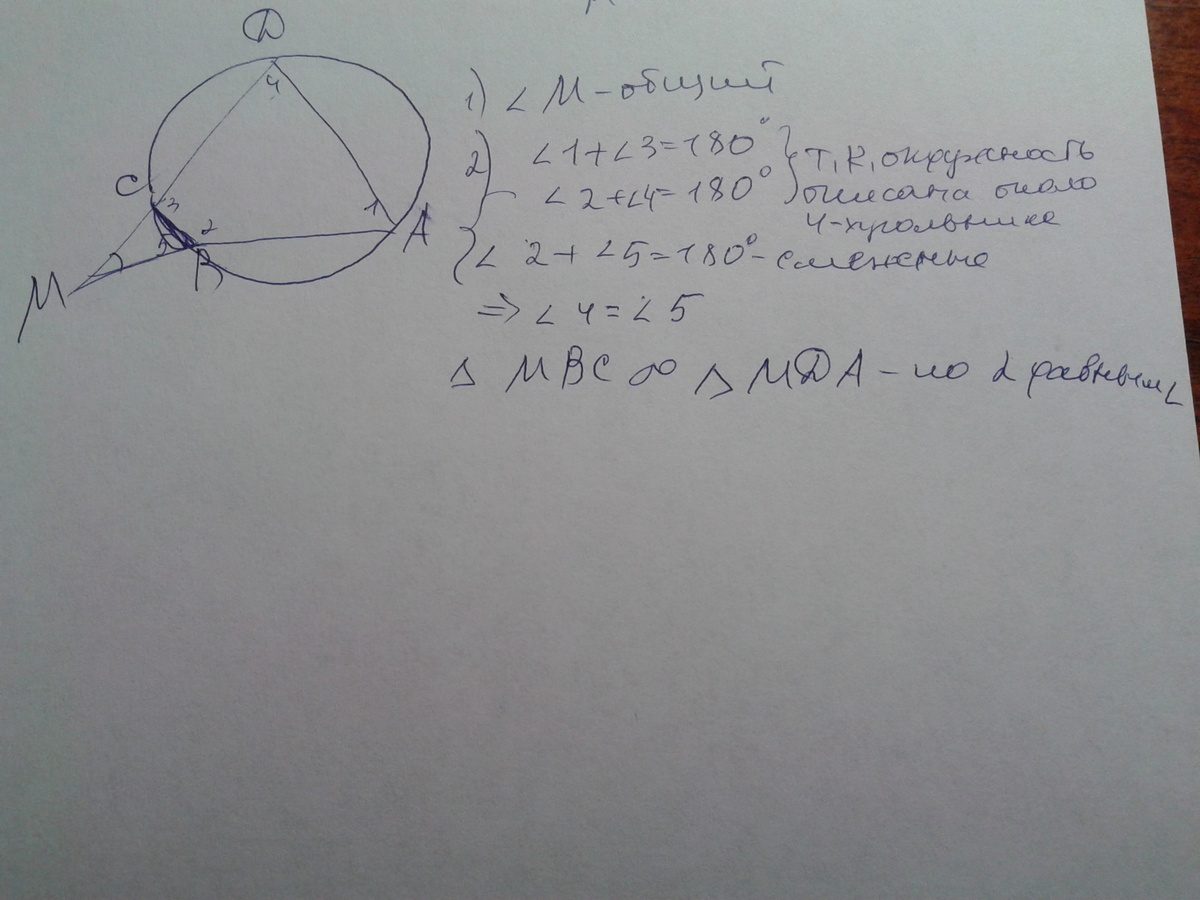 D
4
C
3
1
A
5
2
B
M
1) ∠ M – общий
2) ∠1+∠3=180° } т.к. окружность
∠2+∠4=180° описана около
4-хугольника
∠ 2+ ∠5=180° – смежные
⇒ ∠ 4 = ∠ 5
Δ MBC ∞ Δ MDA – по 2 равным ∠